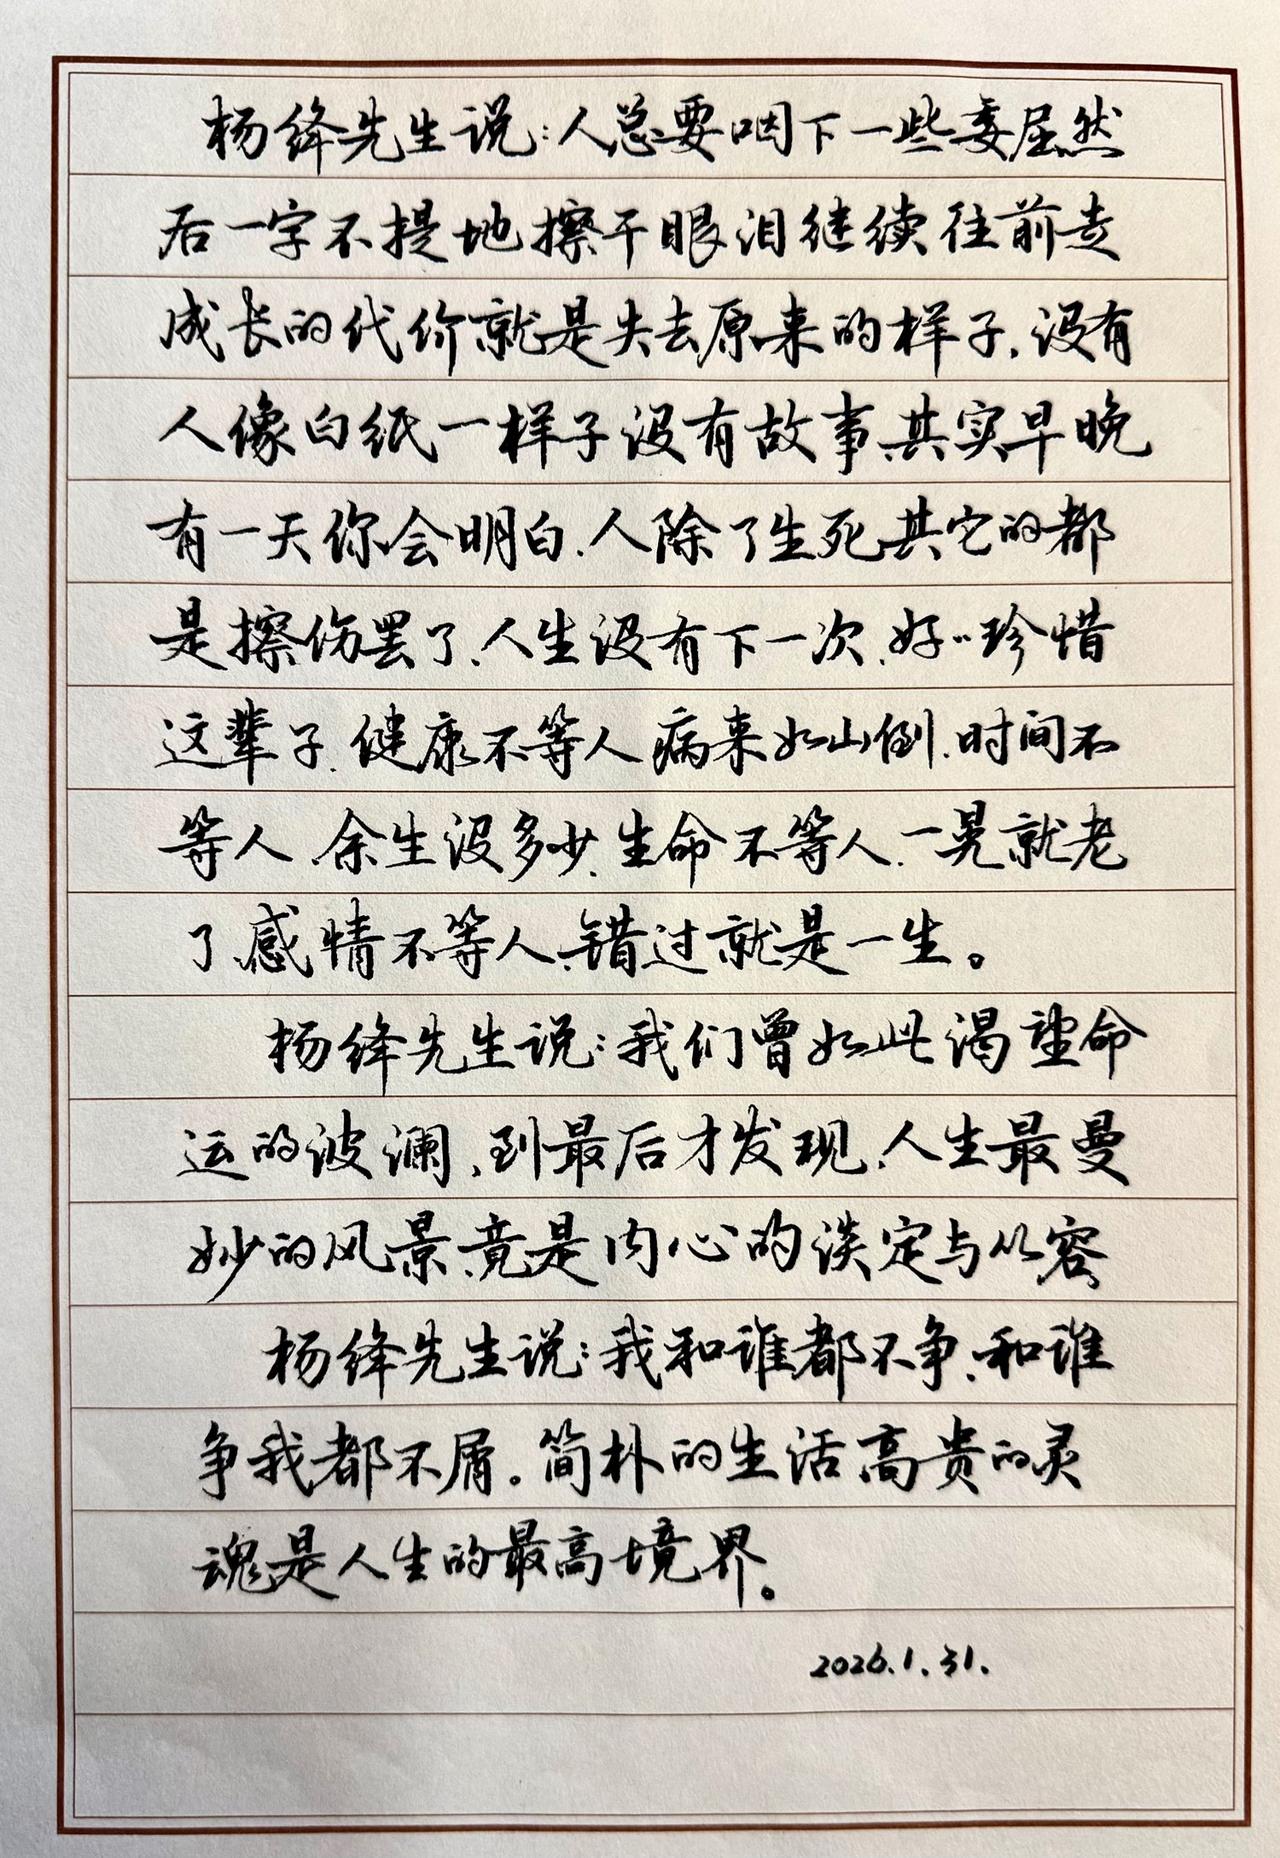 杨绛先生说:人总要咽下一些委屈然
后一字不提地擦干眼泪继续往前走
成长的代价就是失去原来的样子,没有
人像白纸一样子没有故事,其实早晚
有一天你会明白,人除了生死其它的都
是擦伤罢了,人生没有下一次,好〃珍惜
这辈子,健康不等人病来如山倒,时间不
等人,余生没多少,生命不等人,一晃就老
了,感情不等人,错过就是一生。
杨绛先生说:我们曾如此渴望命
运的波澜,到最后才发现,人生最曼
妙的风景,竟是内心的淡定与从容
杨绛先生说:我和谁都不争,和谁
争我都不屑。简朴的生活高贵的灵
魂是人生的最高境界。
2026.1.31.